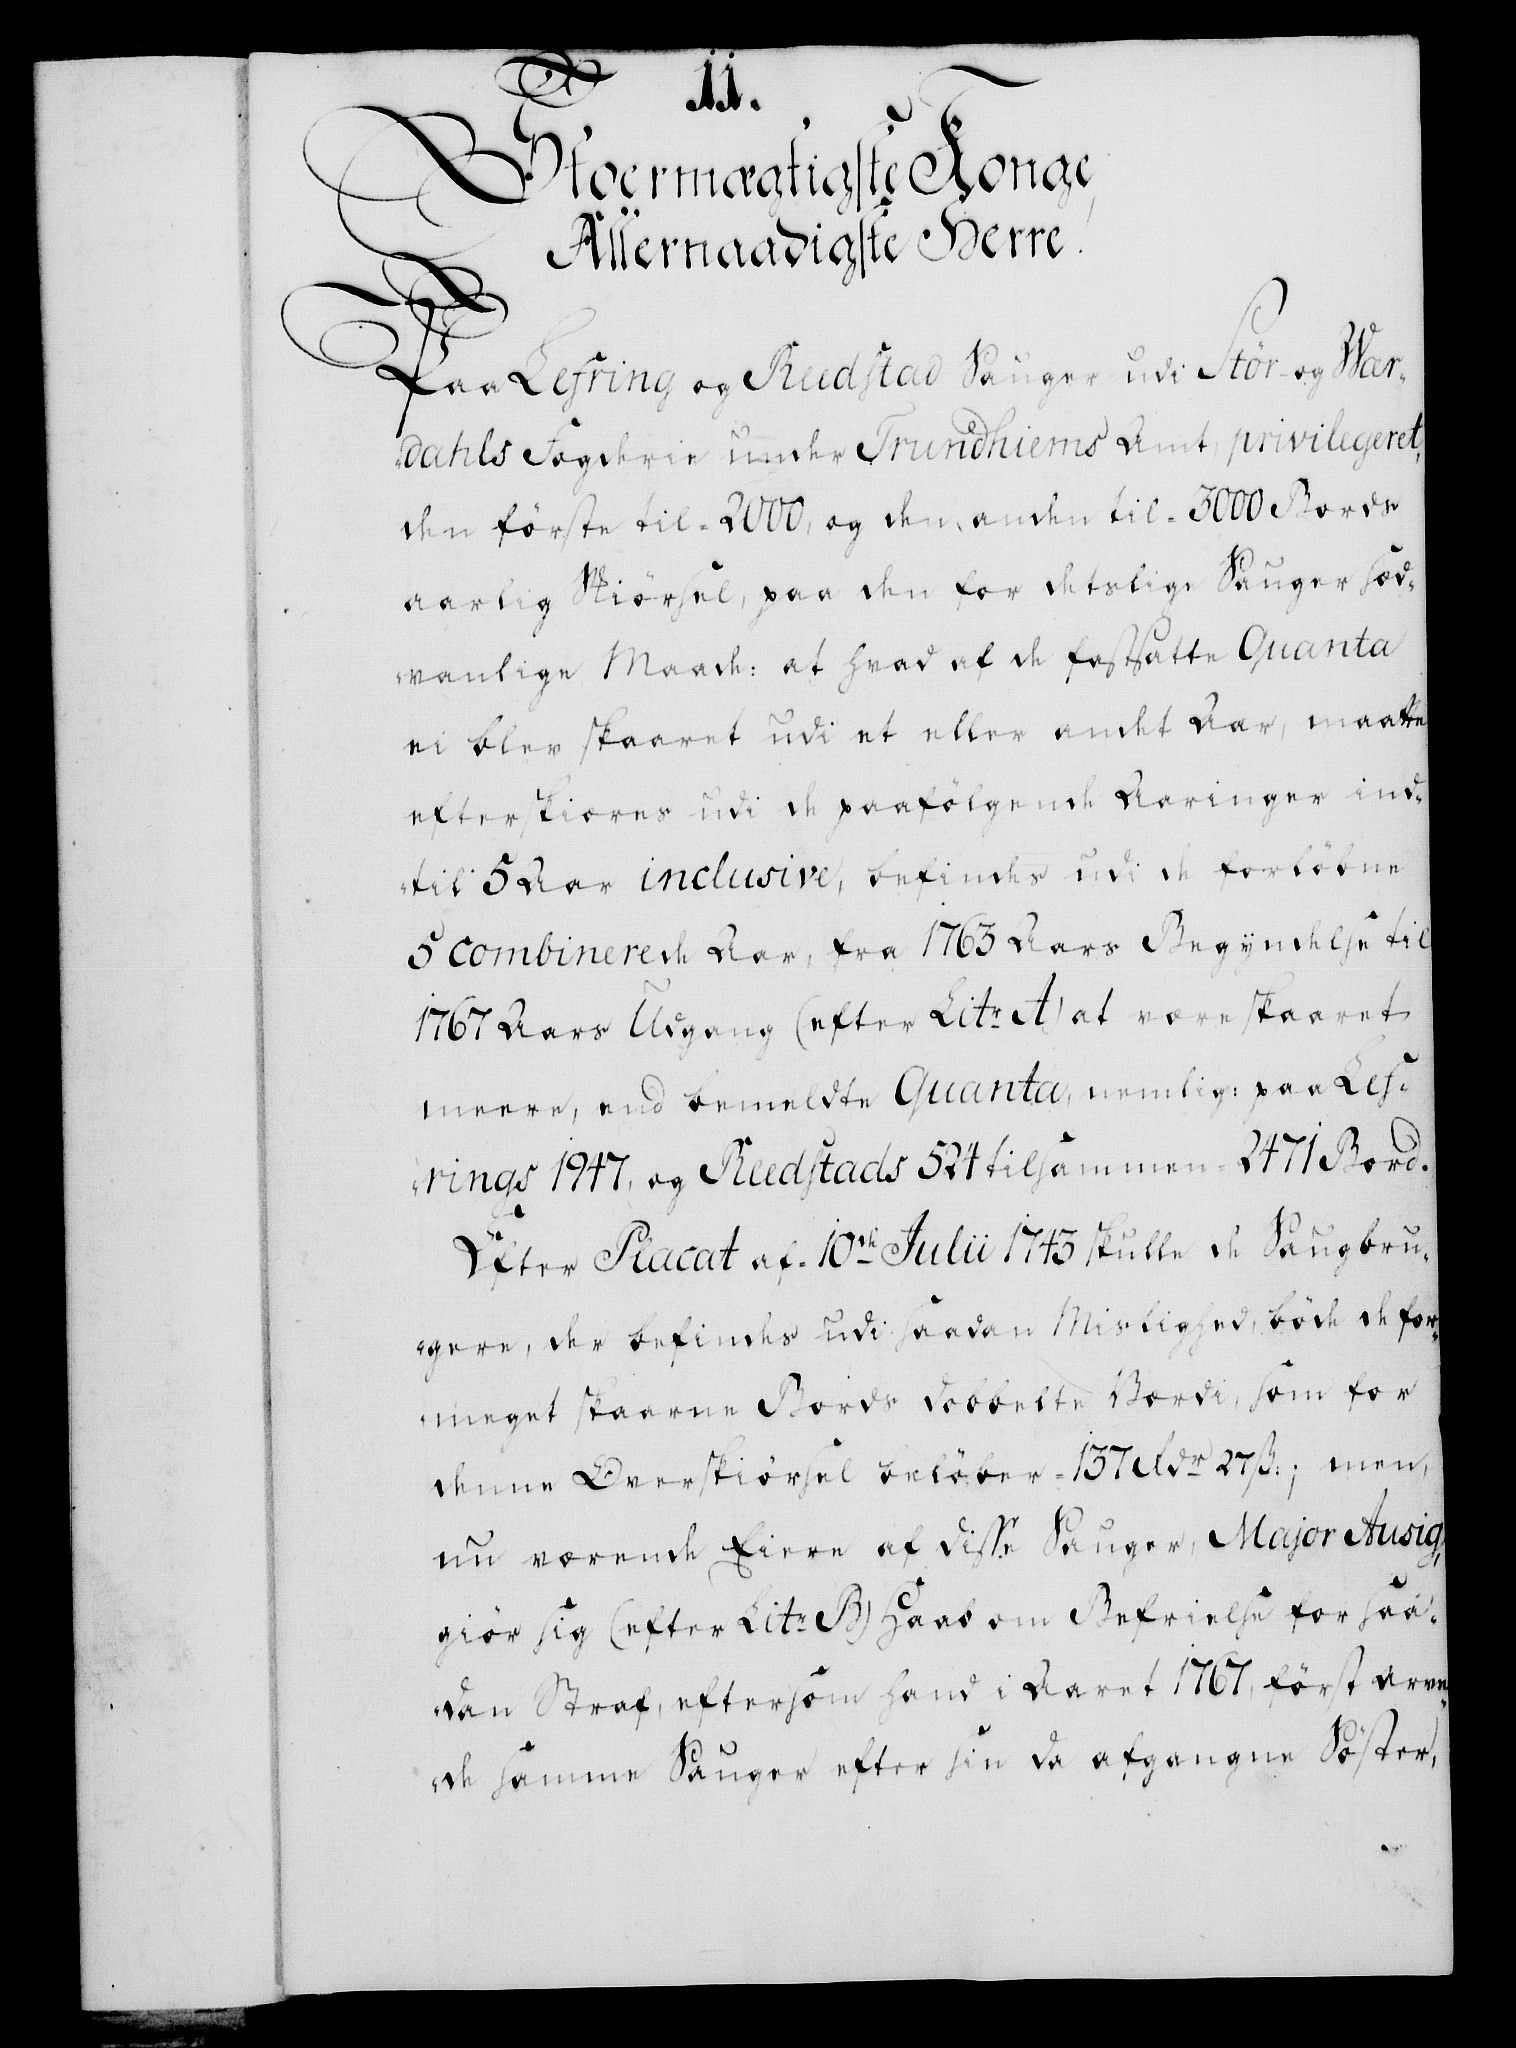 11.
Stoermægtigste Konge,
Allernaadigste Herre!
Paa Lefring og Reedstad Sauger udi Stör- og Wær-
dahls Fogderie under Trundhiems Amt, privilegeret,
den förste til - 2000, og den anden til - 3000 Bords
aarlig Skiörsel, paa den for detslige Sauger sæd-
vanlige Maade: at hvad af de fastsatte Quanta
ei blev skaaret udi et eller andet Aar, maatte
efterskiæres udi de paafölgende Aaringer ind-
til 5 Aar inclusive, befindes udi de forlöbne
5 combinerede Aar, fra 1763 Aars Begÿndelse til
1767 Aars Udgang (efter Litr A) at være skaaret
meere, end bemeldte Quanta, nemlig: paa Lef-
rings 1947, og Reedstads 524 tilsammen - 2471 Bord.
Efter Placat af - 10de Julii 1743 skulle de Saugbru-
gere, der befindes udi saadan Mislighed, böde de for-
meget skaarne Bords dobbelte Værdi, som for
denne Overskiörsel belöber - 137 Rdr 27 ß.; men,
nu værende Eiere af disse Sauger, Major Ausig,
giör sig (efter Litr B) Haab om Befrielse for saa-
dan Straf, eftersom hand i Aaret 1767, först arve-
de samme Sauger efter sin da afgangne Söster,